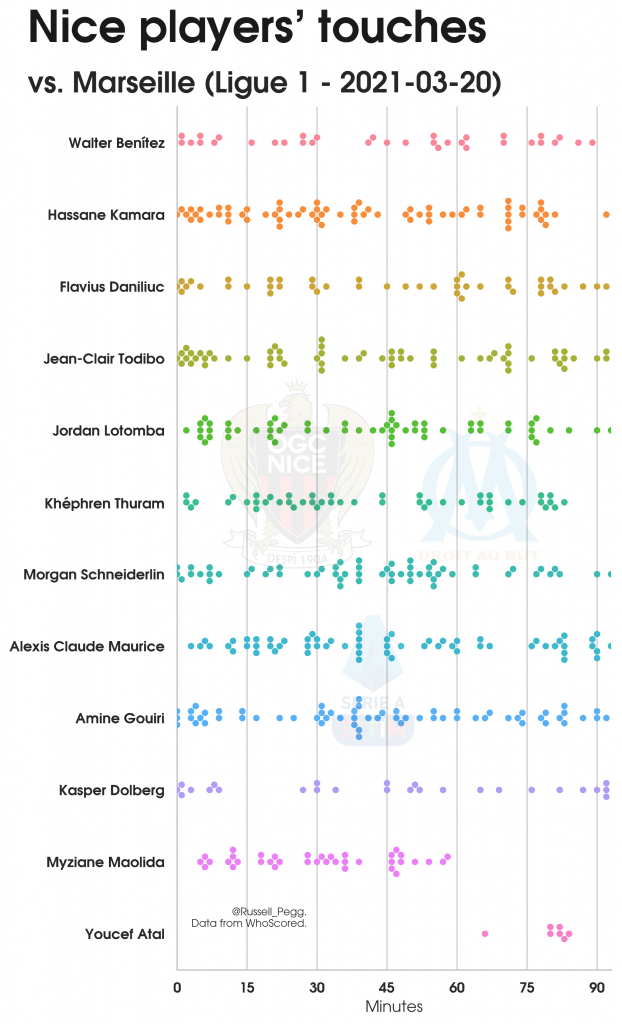 Nice players’ touches
vs. Marseille (Ligue 1 - 2021-03-20)
Walter Benítez
Hassane Kamara
Flavius Daniliuc
Jean-Clair Todibo
Jordan Lotomba
OGC
NICE
Khéphren Thuram
DESPÍ 1904
DROIT AU BUT
Morgan Schneiderlin
Alexis Claude Maurice
SERIE A
Amine Gouiri
Kasper Dolberg
Myziane Maolida
@Russell_Pegg.
Data from WhoScored.
Youcef Atal
0 15 30 45 60 75 90
Minutes